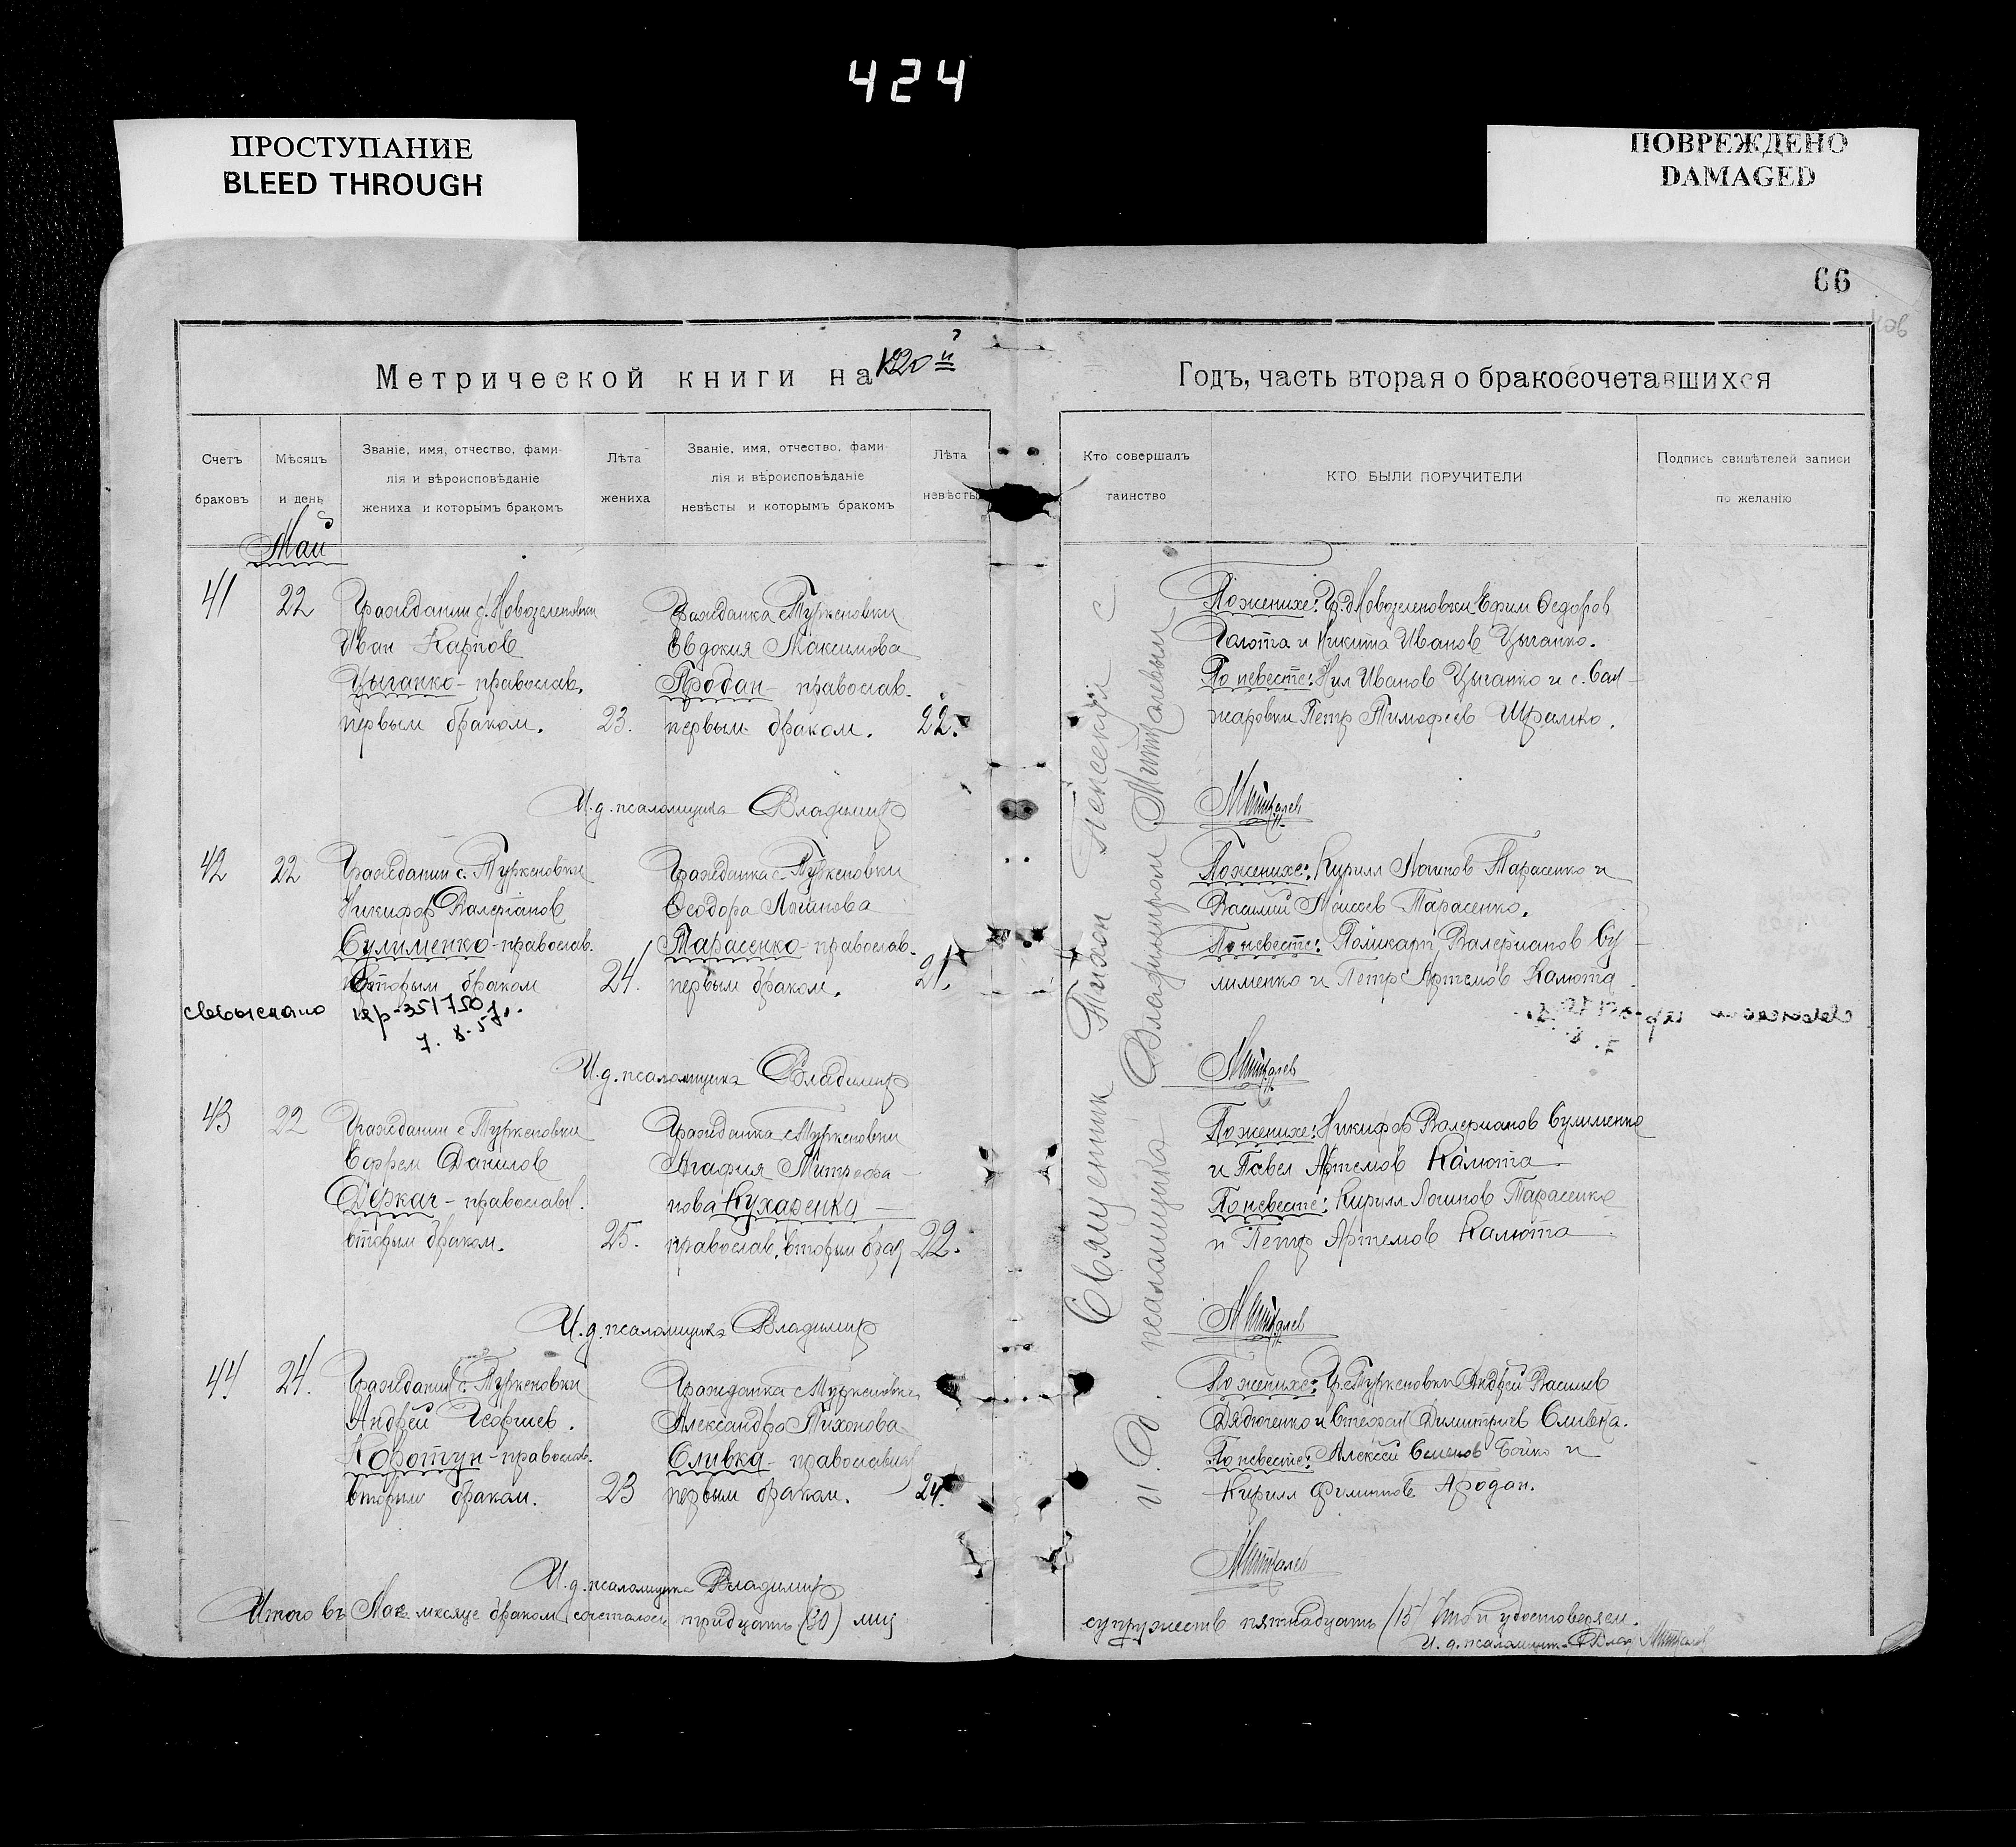 424
ПРОСТУПАНИЕ
BLEED THROUGH
ПОВРЕЖДЕНО
DAMAGED
66
Метрической книги на 1920 й
Годъ, часть вторая о бракосочетавшихся
Счетъ браковъ
Мѣсяцъ и день
Званіе, имя, отчество, фами-
лія и вѣроисповѣданіе
жениха и которымъ бракомъ
Лѣта жениха
Званіе, имя, отчество, фами-
лія и вѣроисповѣданіе
невѣсты и которымъ бракомъ
Лѣта невѣсты
Кто совершалъ таинство
КТО БЫЛИ ПОРУЧИТЕЛИ
Подпись свидѣтелей записи
по желанію
Май
41
22
Гражданин с. Новозеленовки
Иван Карпов
Цыганко - православ.
первым браком.
23.
Гражданка с Туркеновки
Евдокия Максимова
Продан - православ.
первым браком.
22.
По женихе: Гр. с Новозеленовки Ефим Федоров
Галота и Никита Иванов Цыганко.
По невесте: Нил Иванов Цыганко и с.
Петр Тимофеев Шрамко.
И. д. псаломщика Владимир
Митралев
42
22
Гражданин с. Туркеновки
Никифор Валерианов
Сулименко - православ.
вторым браком
24.
Гражданка с. Туркеновки
Феодора Логинова
Тарасенко - православ.
первым браком.
21.
По женихе: Кирилл Логинов Тарасенко и
Василий Моисеев Тарасенко.
По невесте: Поликарп Валерианов Су
лименко и Петр Артемов Калюта
7. 8. 57.
И. д. псаломщика Владимир
Митралев
43
22
Гражданин с Туркеновки
Ефрем Данилов
Деркач - православн.
вторым браком.
25.
Гражданка с Туркеновки
Агафия Митрофа-
нова Кухаренко -
православ. вторым брак
22.
По женихе: Никифор Валерианов Сулименко
и Павел Артемов Калюта
По невесте: Кирилл Логинов Тарасенко
и Петр Артемов Калюта
И. д. псаломщика Владимир
Митралев
44
24.
Гражданин с. Туркеновки
Андрей Георгиев.
Коротун - православ.
вторым браком.
23
Гражданка с Туркеновки
Александра Тихонова
Сливка - православная
первым браком.
24.
По женихе: Гр. с Туркеновки Андрей Васильев
Дядюченко и Стефан Димитриев Сливка.
По невесте: Алексей Семенов Бойко и
Кирилл Филиппов Продан.
И. д. псаломщика Владимир
Митралев
Священник Тихон
и. д. псаломщика Владимиром Митралевым
Итого въ Мае месяце браком сочеталось тридцать (30) лиц
супружеств пятнадцать (15) Что и удостоверяем.
И. д. псаломщик. Влад Митралев